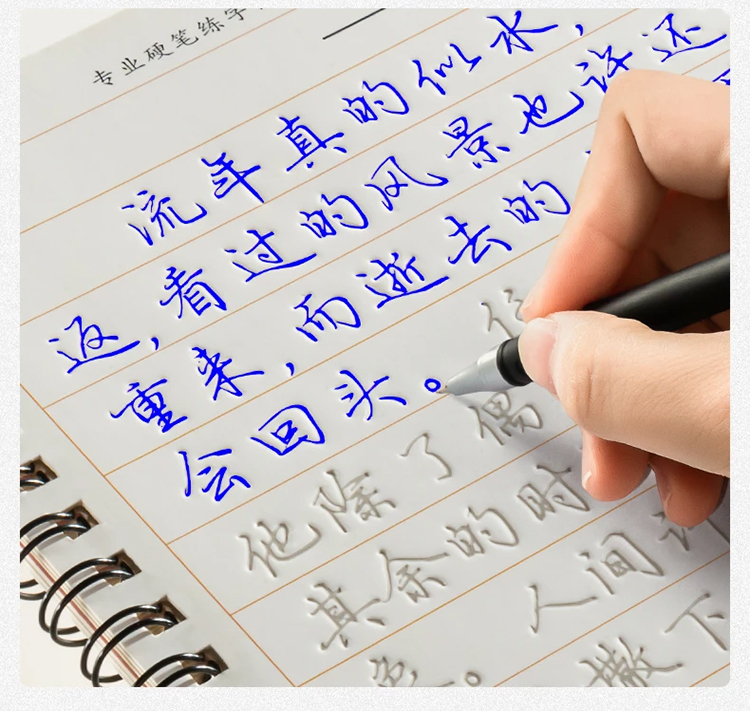 专业硬笔练字
流年真的似水,
看过的风景也许还
返,
重来,而逝去的
会回头。
他除了偶
其余的时
人间
撒下